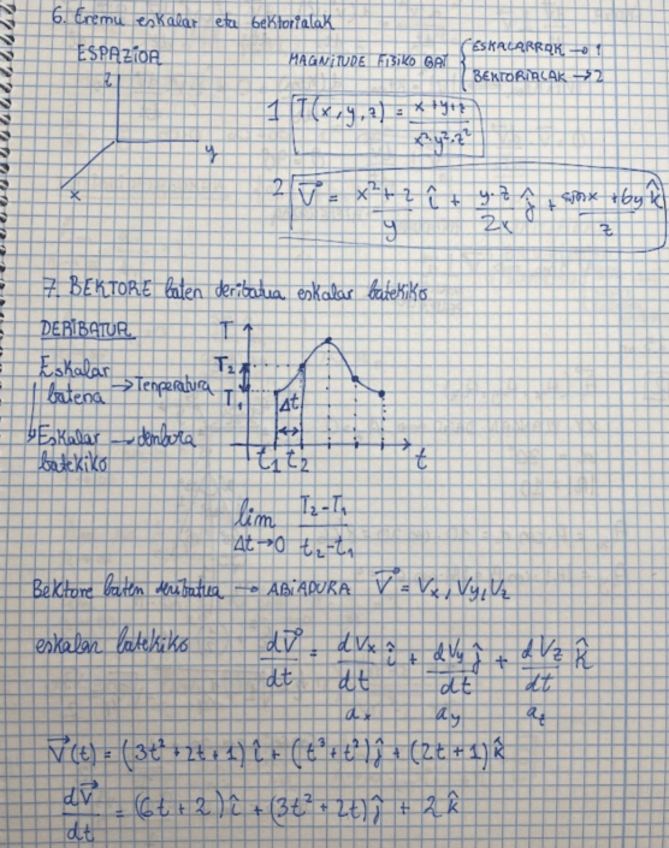 6. Eremu eskalar eta bektorialak
ESPAZIOA
z
y
x
MAGNITUDE FISIKO BAT { ESKALARRAK → 1
BEKTORIALAK → 2
1 T(x, y, z) = (x + y + z) / (x² · y² · z²)
2 V⃗ = (x² + 2)/y î + (y · z)/(2x) ĵ + (sin x + 6y)/z k̂
7. BEKTORE baten deribatua eskalar batekiko
DERIBATUA
Eskalar batena → Tenperatura
Eskalar batekiko → denbora
T
T₂
T₁
Δt
t₁ t₂ t
lim Δt→0 (T₂ - T₁)/(t₂ - t₁)
Bektore baten deribatua → ABIADURA V⃗ = Vx, Vy, Vz
eskalar batekiko dV⃗/dt = dVx/dt î + dVy/dt ĵ + dVz/dt k̂
ax ay az
V⃗(t) = (3t² + 2t + 1) î + (t³ + t²) ĵ + (2t + 1) k̂
dV⃗/dt = (6t + 2) î + (3t² + 2t) ĵ + 2 k̂